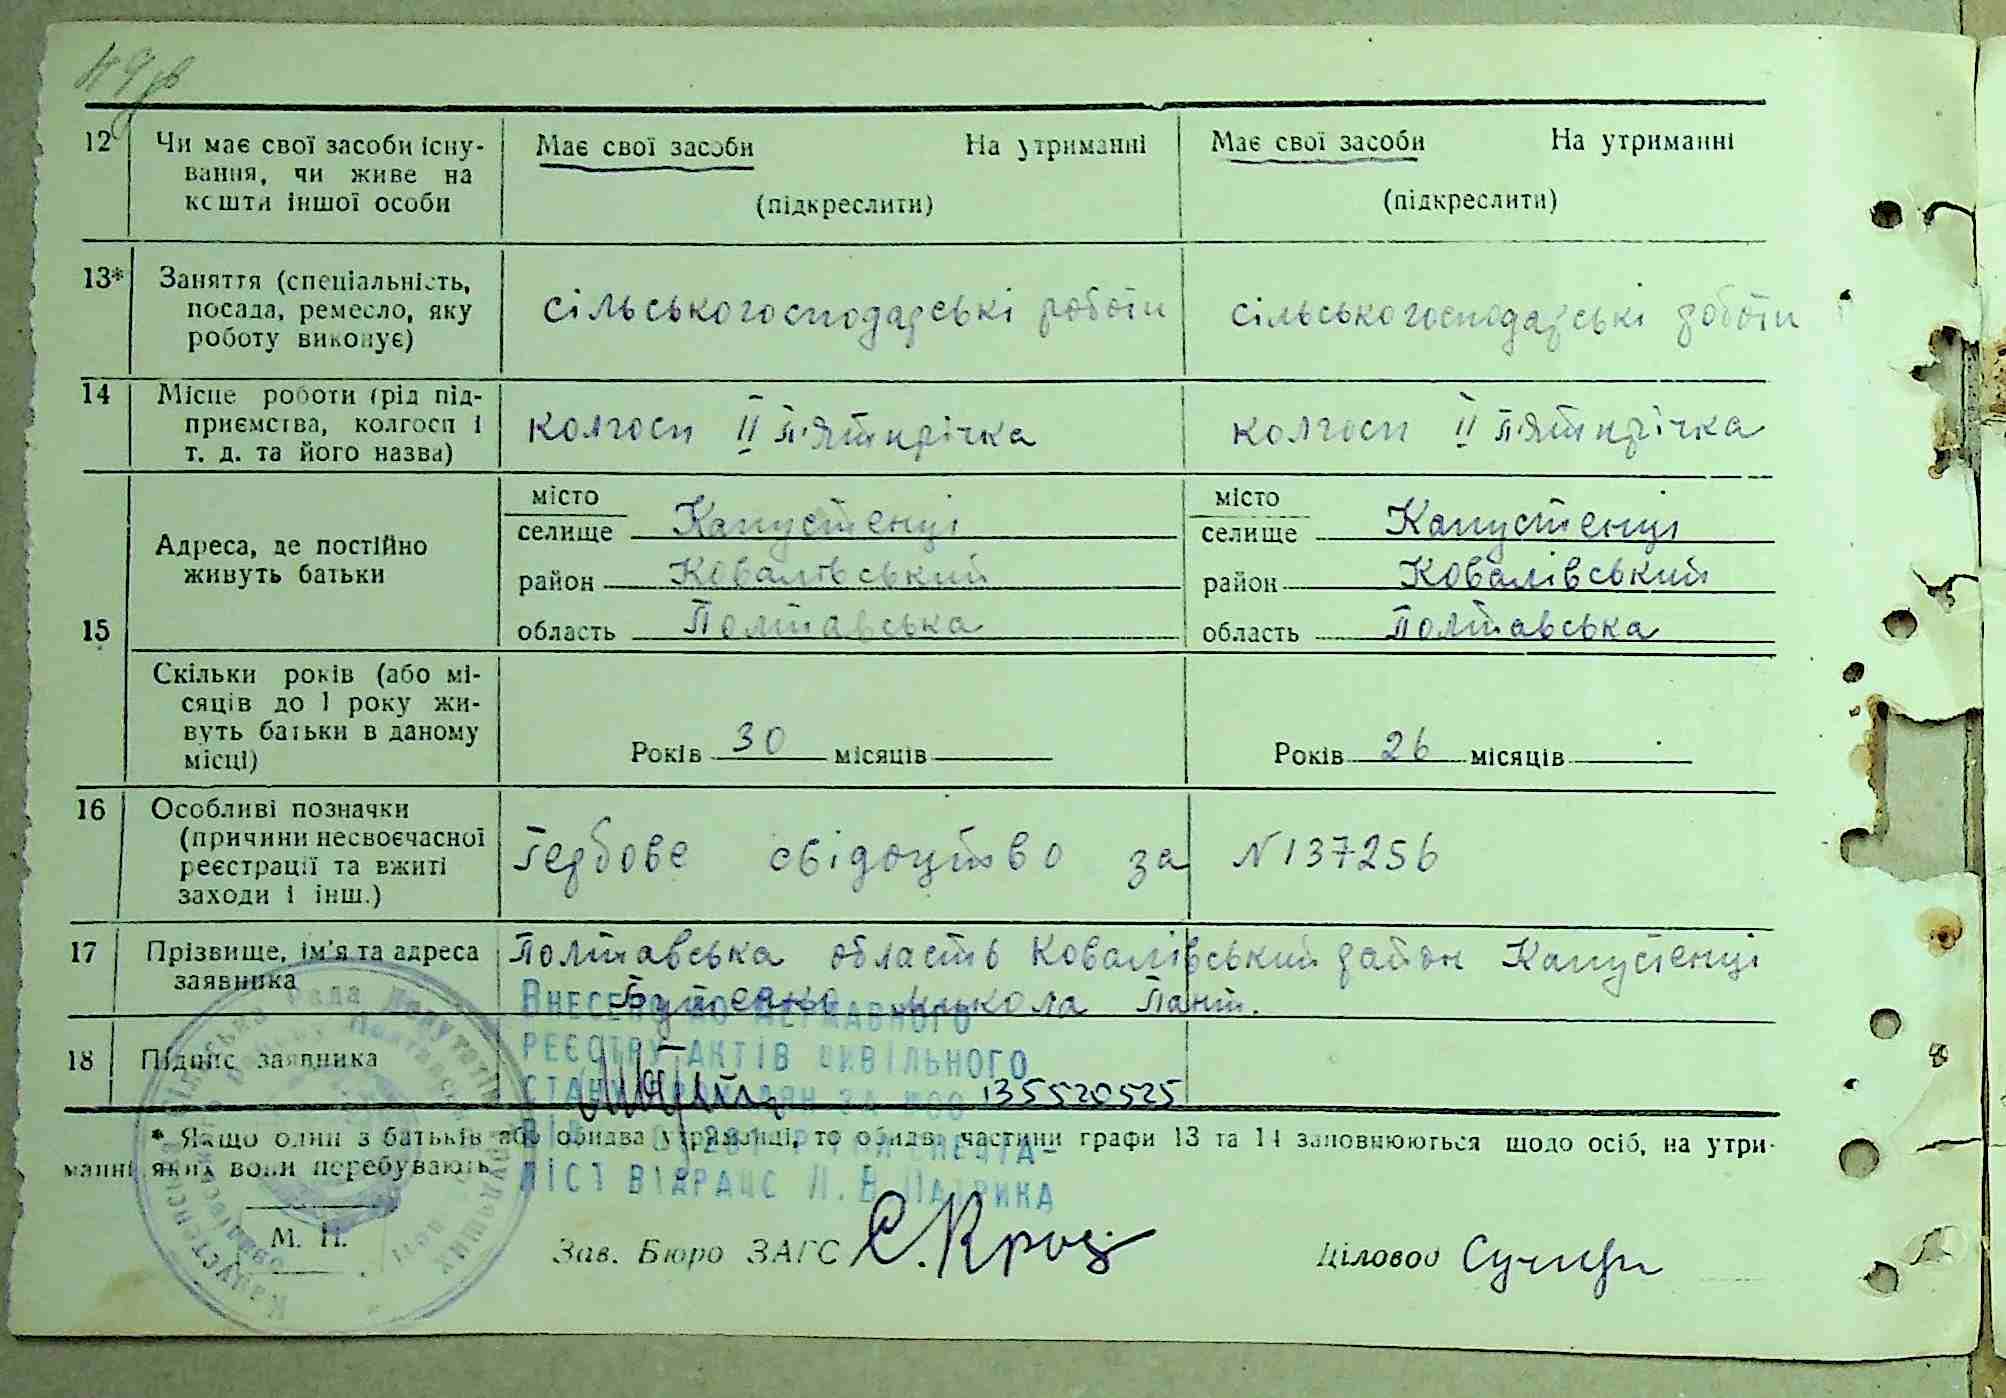 12 Чи має свої засоби існу- Має свої засоби На утриманні Має свої засоби На утриманні
вання, чи живе на
кошти іншої особи (підкреслити) (підкреслити)
13* Заняття (спеціальність,
посада, ремесло, яку сільськогосподарські роботи сільськогосподарські роботи
роботу виконує)
14 Місце роботи (рід під-
приємства, колгосп і колгосп ІІ п'ятирічка колгосп ІІ п'ятирічка
т. д. та його назва)
місто місто
Адреса, де постійно селище Капустенці селище Капустенці
живуть батьки район Ковалівський район Ковалівський
15 область Полтавська область Полтавська
Скільки років (або мі-
сяців до 1 року жи-
вуть батьки в даному
місці) Років 30 місяців Років 26 місяців
16 Особливі позначки
(причини несвоєчасної
реєстрації та вжиті Гербове свідоцтво за N137256
заходи і інш.)
17 Прізвище, ім'я та адреса Полтавська область Ковалівський район Капустенці
заявника микола Пант.
ВНЕСЕНО ДО ДЕРЖАВНОГО
РЕЄСТРУ АКТІВ ЦИВІЛЬНОГО
18 Підпис заявника
СТАНУ ГРОМАДЯН ЗА №00 135520525
* Якщо один з батьків або обидва утриманці, то обидві частини графи 13 та 14 заповнюються щодо осіб, на утри-
манні яких вони перебувають.
М. П.
Зав. Бюро ЗАГС Діловод